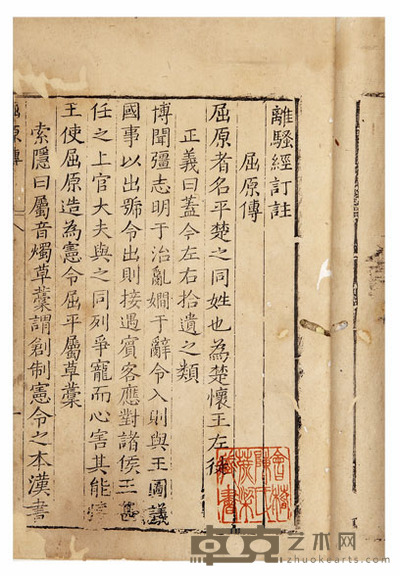 離騷經訂註
屈原傳
屈原者名平楚之同姓也為楚懷王左徒
正義曰蓋今左右拾遺之類
博聞彊志明于治亂嫺于辭令入則與王圖議
國事以出號令出則接遇賓客應對諸侯王甚
任之上官大夫與之同列爭寵而心害其能懷
王使屈原造為憲令屈平屬草藁
索隱曰屬音燭草藁謂創制憲令之本漢書
屈原傳
會稽
陳氏
藏書
艺术网
http://www.artxun.com